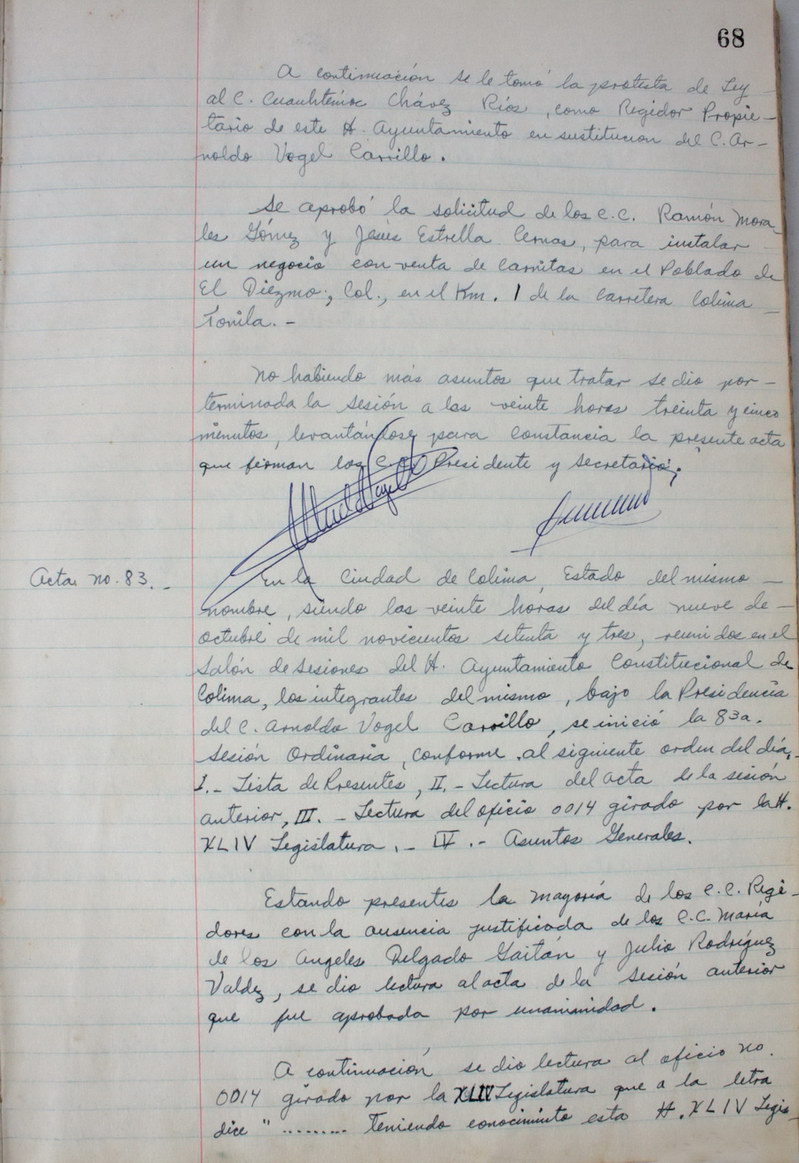 68
A continuación se le tomó la protesta de Ley
al C. Cuauhtémoc Chávez Ríos, como Regidor Propie-
tario de este H. Ayuntamiento en sustitucion del C. Ar-
noldo Vogel Carrillo.
Se aprobó la solicitud de los C.C. Ramón Mora-
les Gómez y Jesús Estrella Cernas, para instalar
un negocio con venta de carnitas en el Poblado de
El Diezmo, Col., en el Km. 1 de la carretera Colima
Tonila.-
No habiendo más asuntos que tratar se dio por-
terminada la sesión a las veinte horas treinta y cinco
minutos, levantándose para constancia la presente acta
que firman los C.C. Presidente y Secretario.
Acta no. 83.-
En la Ciudad de Colima, Estado del mismo -
nombre, siendo las veinte horas del día nueve de-
octubre de mil novecientos setenta y tres, reunidos en el
Salón de Sesiones del H. Ayuntamiento Constitucional de
Colima, los integrantes del mismo, bajo la Presidencia
del C. Arnoldo Vogel Carrillo, se inició la 83a.
Sesión Ordinaria, conforme al siguiente orden del día,-
I.- Lista de Presentes, II.- Lectura del acta de la sesión
anterior, III.- Lectura del oficio 0014 girado por la H.
XLIV Legislatura.- IV.- Asuntos Generales.
Estando presentes la mayoría de los C.C. Regi-
dores con la ausencia justificada de los C.C. María
de los Angeles Delgado Gaitán y Julio Rodríguez
Valdez, se dio lectura al acta de la sesión anterior
que fue aprobada por unanimidad.
A continuación se dio lectura al oficio no.
0014 girado por la XLIV Legislatura que a la letra
dice "......... Teniendo conocimiento esta H. XLIV Legis-